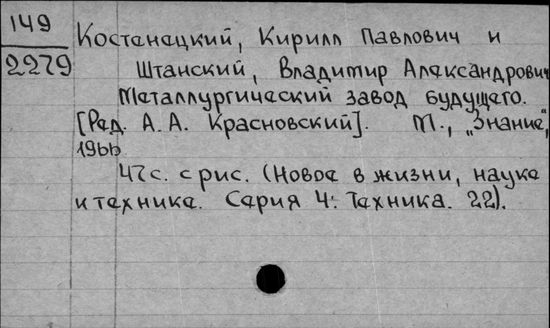 149
2279
Костенецкий, Кирилл Павлович и
Штанский, Владимир Александрович
Металлургический завод будущего.
[Ред. А. А. Красновский]. М., „Знание",
1966
47с. с рис. (Новое в жизни, науке
и технике. Серия 4: Техника. 22).